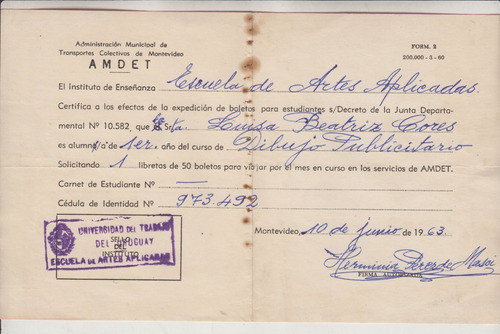 Administración Municipal de
Transportes Colectivos de Montevideo
AMDET
FORM. S
200,000 - 5 - 60
El Instituto de Enseñanza Escuela de Artes Aplicadas.
Certifica a los efectos de la expedición de boletos para estudiantes s/Decreto de la Junta Departa-
mental Nº 10.582, que la Srta. Luisa Beatriz Cores
es alumn/a de 1er año del curso de Dibujo Publicitario
Solicitando 1 libretas de 50 boletos para viajar por el mes en curso en los servicios de AMDET.
Carnet de Estudiante Nº —
Cédula de Identidad Nº 973.492
Montevideo, 10 de junio de 1963.
UNIVERSIDAD DEL TRABAJO
DEL URUGUAY
ESCUELA DE ARTES APLICADAS
SELLO
DEL
INSTITUTO
Herminia Perez de
FIRMA AUTORIZADA